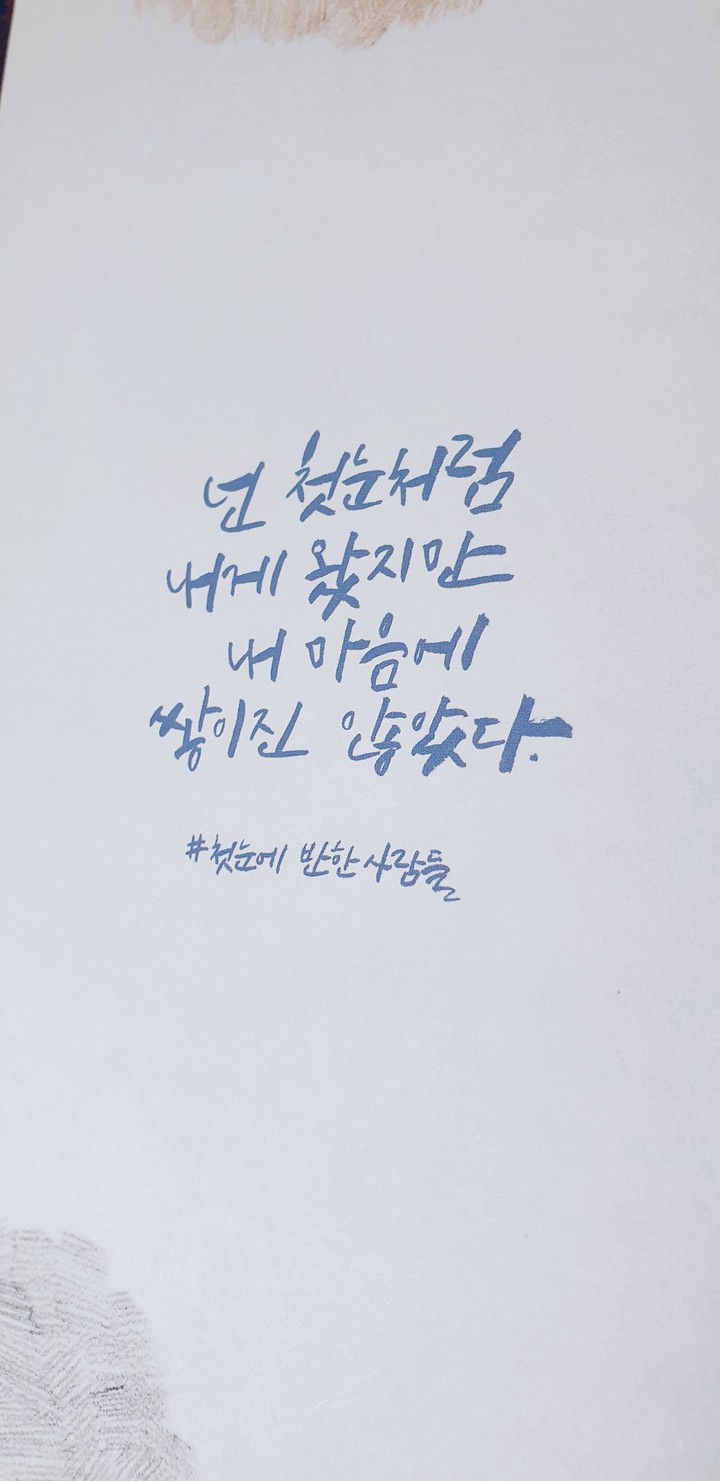 넌 첫눈처럼
내게 왔지만
내 마음에
쌓이진 않았다.
#첫눈에 반한 사람들